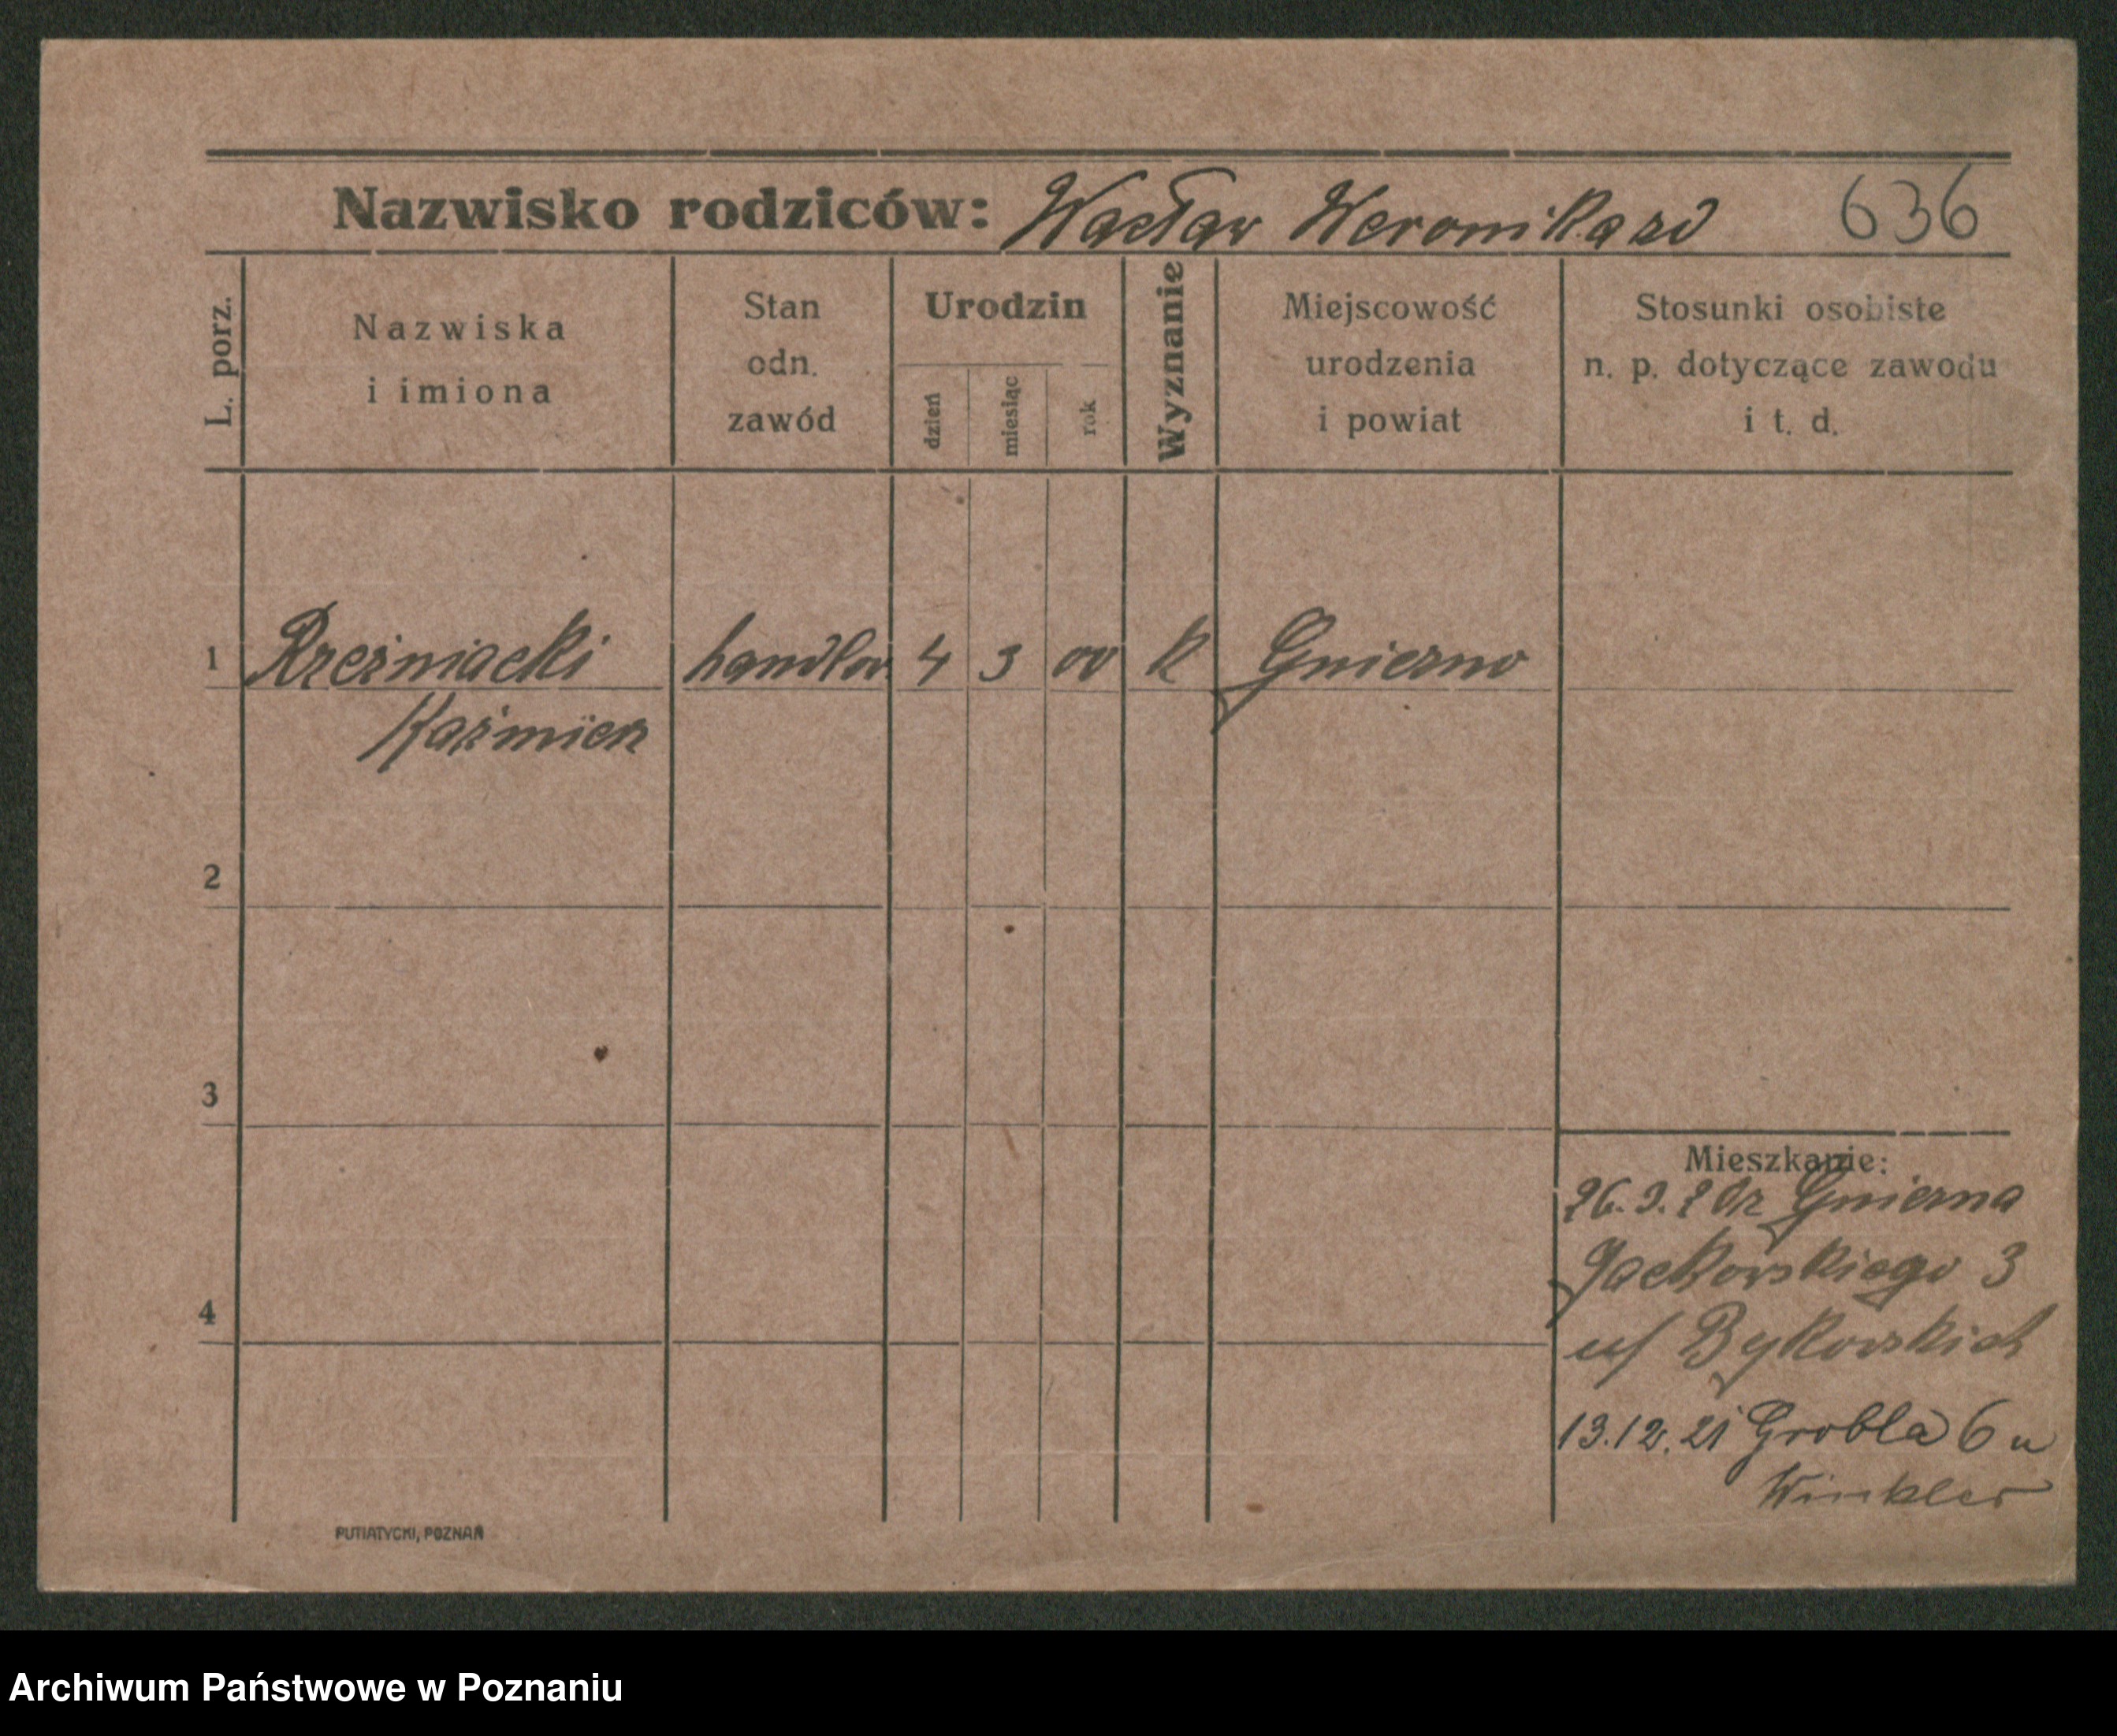 Nazwisko rodziców: Wacław Weronika 636
L. porz.
Nazwiska
i imiona
Stan
odn.
zawód
Urodzin
dzień
miesiąc
rok
Wyznanie
Miejscowość
urodzenia
i powiat
Stosunki osobiste
n. p. dotyczące zawodu
i t. d.
1 Rzeźniacki handlow. 4 3 00 k Gniezno
Kaźmierz
2
3
Mieszkanie:
z Gniezna
Jackowskiego 3
4
u/ Bykowskich
13.12.21 Grobla 6 u
Winkler
PUTIATYCKI, POZNAŃ
Archiwum Państwowe w Poznaniu